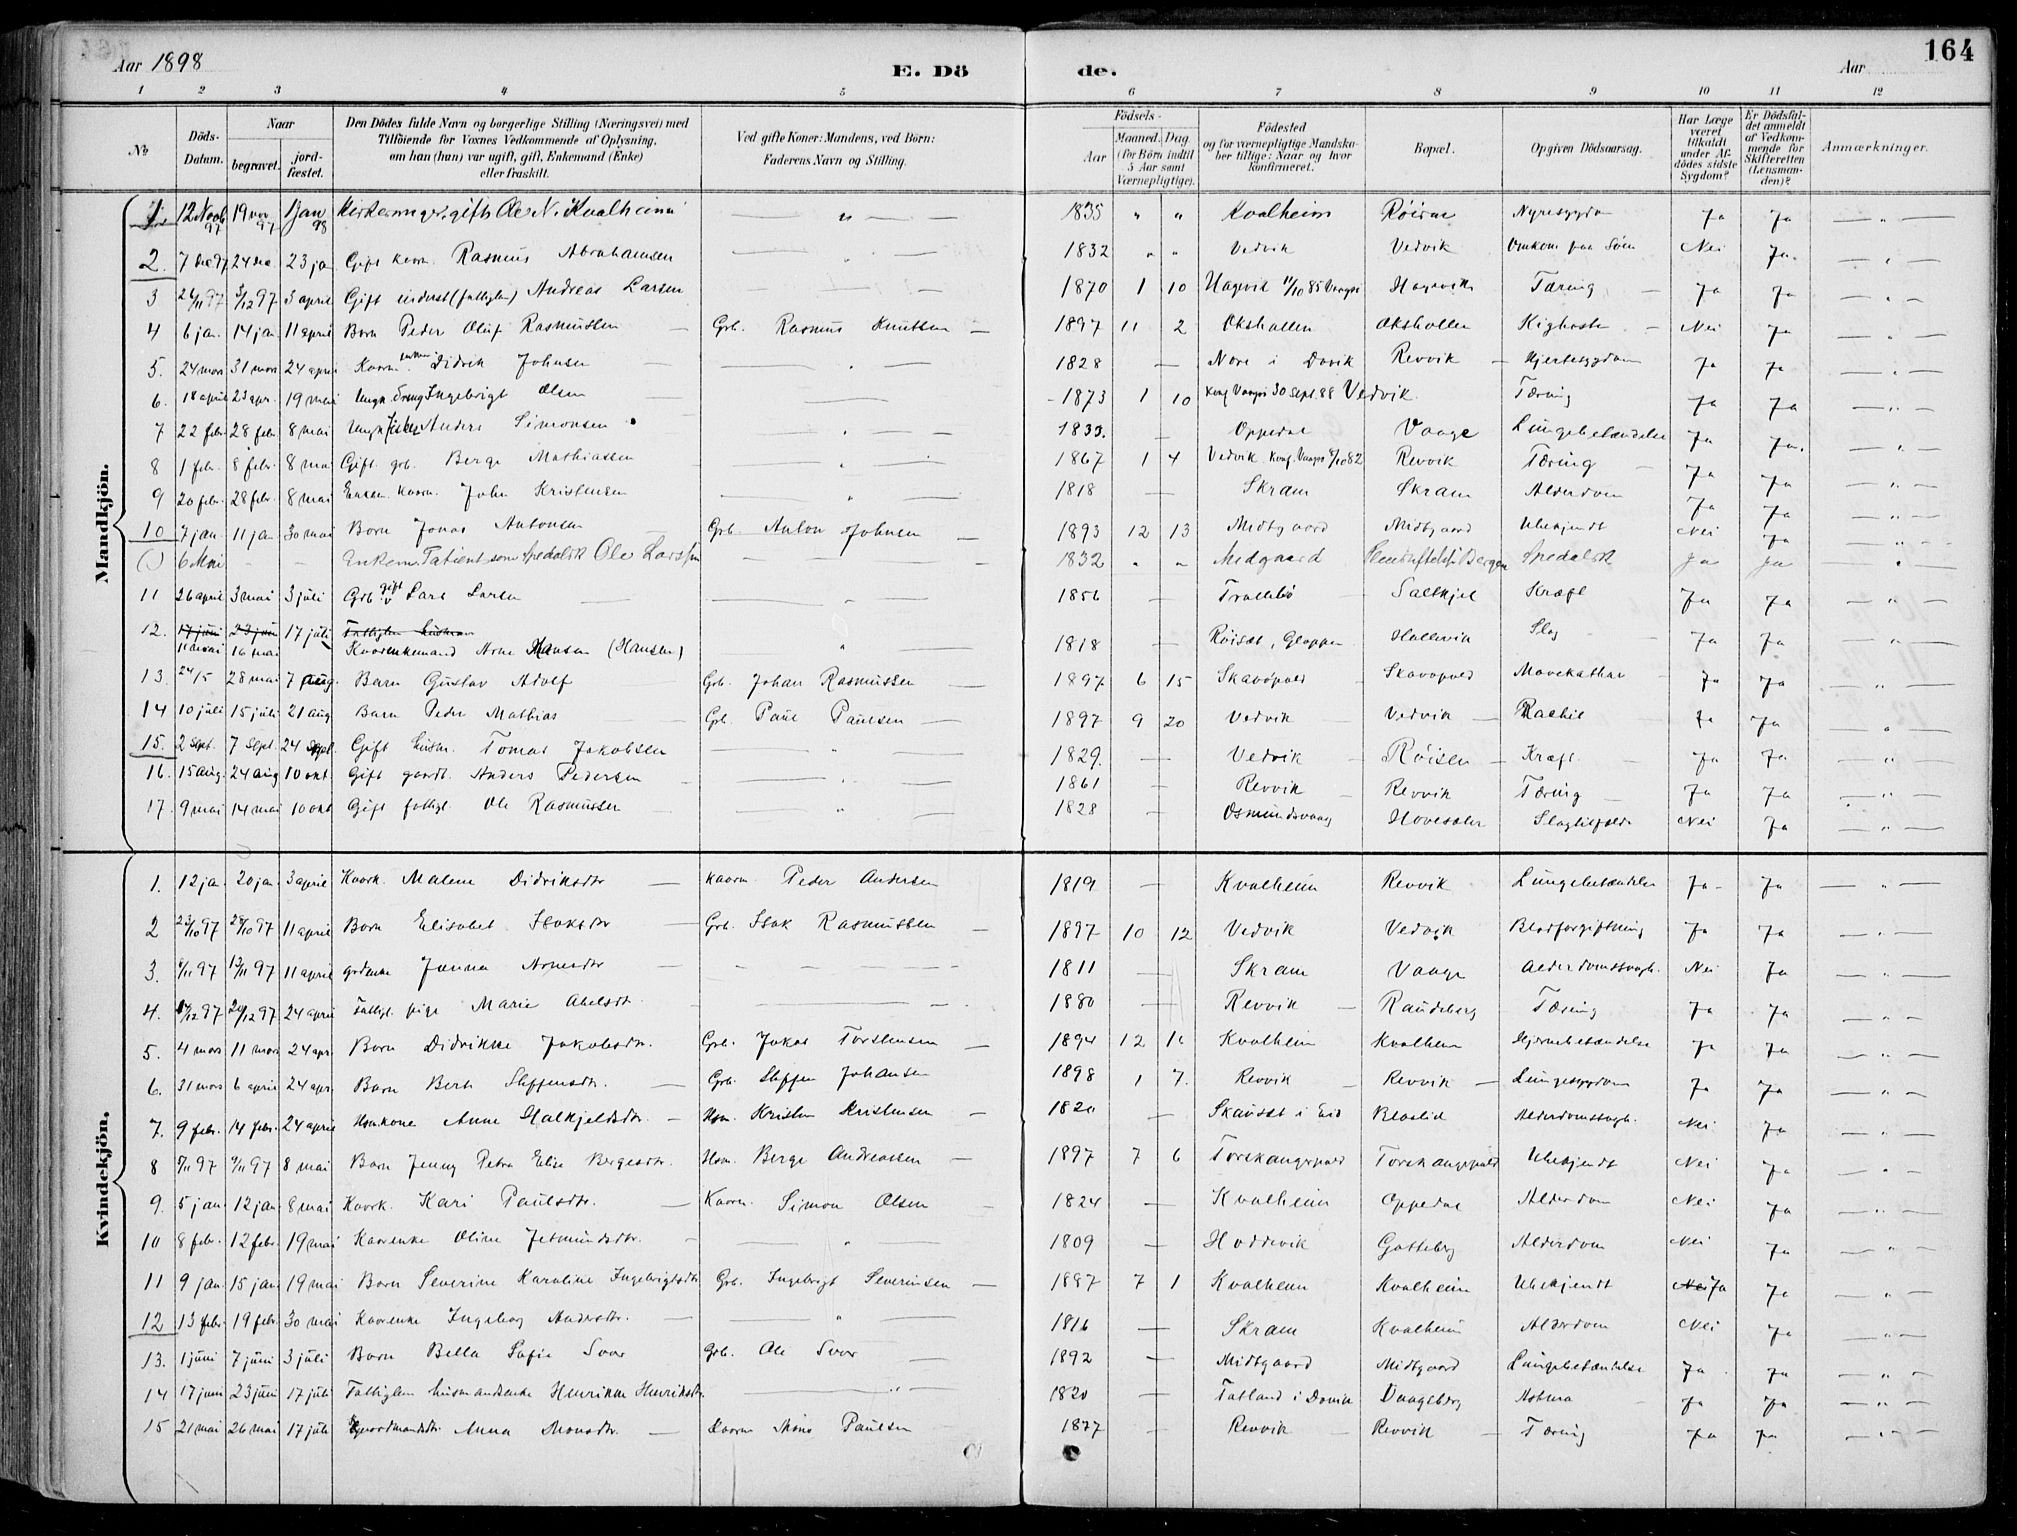 Aar 1898
E. Dö
de.
Aar
164
1 2 3 4 5 6 7 8 9 10 11 12
№
Döds-Datum.
Naar
begravet.
jordfæstet.
Den Dödes fulde Navn og borgerlige Stilling (Næringsvei) med
Tilföiende for Voxnes Vedkommende af Oplysning,
om han (hun) var ugift, gift, Enkemand (Enke)
eller fraskilt.
Ved gifte Koner: Mandens, ved Börn:
Faderens Navn og Stilling.
Födsels-
Aar
Maaned. Dag
(for Börn indtil
5 Aar samt
Værnepligtige).
Födested
og for værnepligtige Mandskaber tillige: Naar og hvor konfirmeret.
Bopæl.
Opgiven Dödsaarsag.
Har Læge været tilkaldt under Afdödes sidste Sygdom?
Er Dödsfaldet anmeldt af Vedkommende for Skifteretten (Lensmanden)?
Anmærkninger.
Mandkjön.
1. 12 Novb 97 19 nov 97 1 Jan 98 gift Ole N. Kvalheim — " — 1835 " " Kvalheim Röisæ Nyresygdo Ja Ja — " —
2. 7 dec 97 24 dec 23 ja Gift Rasmus Abrahamsen — " — 1832 " " Vedvik Vedvik Omkom paa Söen Nei Ja. — " —
3 3/12 97 3 april Gift inderst (fattiglem) Andreas Larsen — 1870 1 10 Hagevik 11/10 85 Vaagsö Hagevik Tæring Ja Ja — " —
4 6 ja. 14 ja 11 april Barn Peder Oluf Rasmussen — Grb. Rasmus Knutsen — 1897 11 2 Okshollen Oksholler Kighoste — Nei Ja — " —
5. 24 mars 31 mars 24 april Kaarm. Didrik Johnsen — " — 1828 — Nore i Davik Revvik — Hjertesygdom Ja Ja — " —
6. 18 april 23 apr. 19 mai Ungk. Dreng Ingebrigt Olsen — 1873 1 10 Konf Vaagsö 30 Sept. 88 Vedvik. Tæring Ja Ja — " —
7 22 febr. 28 febr. 8 mai Ungk. Fisker Anders Simonsen — " — 1833. — Oppedal Vaage Lungebetændelse Ja Ja. — " —
8 1 feb. 8 febr. 8 mai Gift. grb. Berge Mathiassen — " — 1867 1 4 Vedvik Konf. Vaagsö 8/10 82 Revvik Tæring — Ja Ja — " —
9 20 febr. 28 febr. 8 mai Enkem. Kaarm. John Kristensen — " — 1818 — Skram Skram Alderdom Ja Ja — " —
10 7 jan. 11 ja 30 mai Barn Jonas Antonsen — Grb. Anton Johnsen — 1893 12 13 Midtgaard Midtgaard Ubekjendt Nei Ja — " —
6 Mai — — Enkem. Patient som Spedalsk Ole Larssen — 1832 " " Midgaard Pleiestiftelse i Bergen Spedalsk Ja Ja — " —
11 26 april 3 mai 3 juli Grb. gift Lars Larsen — " — 1856 — Trollebö Saltkjel Kræft Ja Ja — " —
12. 17 juni 23 juni 17 juli Fattiglem husman
11 mai 16 mai Kaarenkemand Arne Hansen (Hansen) " 1818 — Röiset, Gloppen Hollevik Slag Ja Ja — " —
13. 24/5 28 mai 7 aug. Barn Gustav Adolf Grb. Johan Rasmussen — 1897 6 15 Skavöpold Skavopold Mavekathar Ja Ja — " —
14 10 juli 15 juli 21 aug Barn Peder Mathias — Grb. Paul Paulsen — 1897 9 20 Vedvik — Vedvik — Rachit Ja Ja — " —
15. 2 Sept. 7 Sept. 24 Sept. Gift husm. Tomas Jakobsen — " — 1829. — Vedvik — Röisen — Kræft — Ja Ja — " —
16. 15 aug. 24 aug 10 okt. Gift gaardb. Anders Pedersen — " — 1861 — Revvik — Revvik Tæring — Ja Ja — " —
17. 9 mai 14 mai 10 okt Gift fattigl. Ole Rasmussen — " — 1828 — Osmundsvaag Hovesæter Slagtilfælde Nei Ja — " —
Kvindekjön.
1. 12 ja. 20 ja. 3 april Kaark. Malene Didriksdtr — Kaarm. Peder Andersen 1819 — Kvalheim Revvik Lungebetændelse Ja- Ja — " —
2 23/10 97 28/10 97 11 april Barn Elisabet Isaksdtr — Grb. Isak Rasmussen — 1897 10 12 Vedvik Vedvik Blodforgiftning Ja Ja — " —
3. 8/11 97 13/11 97 11 april grdenke Janna Arnesdtr — 1811 — Skram Vaage Alderdomssvagh. Nei Ja — " —
4. 12 97 12 97 24 april Fattigl. pige Marie Abelsdt. — 1880 — Revvik — Raudeberg Tæring Ja Ja — " —
5. 4 mars 11 mars 24 apr. Barn Didrikke Jakobsdtr. Grb. Jakob Torstensen — 1894 12 Kvalheim Kvalheim Hjernebetændelse Ja Ja — " —
6. 31 mars 6 april 24 apr. Barn Berte Steffensdtr. — Grb. Steffen Johansen 1898 1 7. Revvik — Revvik — Lungesygdom Ja Ja — " —
7. 9 febr. 14 febr. 24 april Hsm.kone Anne Halkjeldsdtr. — Hsm. Kristen Kristensen — 1820 — Skauset i Eid Blaalid Alderdomssvagh. Nei Ja — " —
8 5/11 97 9/11 97 8 mai Barn Jenny Petra Elise Bergesdtr. Hsm. Berge Andreassen — 1897 7 6 Torskangerpold Torskangerpold Ubekjendt Nei Ja — " —
9. 5 jan. 12 jan. 8 mai Kaark. Kari Paulsdtr. — Kaarm. Simon Olsen — 1824 — Kvalheim Oppedal Alderdom Nei Ja — " —
10 8 febr. 12 febr. 19 mai Kaarenke Oline Jetmundsdtr. — " — 1809 — Hoddevik Gotteberg Alderdom Nei Ja — " —
11 9 jan. 15 jan 19 mai Barn Severine Karoline Ingebrigtsdtr Grb. Ingebrigt Severinsen — 1897 7 1 Kvalheim Kvalheim Ubekjendt Nei Ja Ja — " —
12 13 febr. 19 febr. 30 mai Kaarenke Ingeborg Andersdtr. — " — 1816 — Skram Kvalheim Alderdom Nei Ja — " —
13. 1 juni 7 juni 3 juli Barn Bella Sofie Svor Grb. Ole Svor — 1892 — Midtgaard Midtgaard Lungebetændelse Ja Ja — " —
14 17 juni 23 juni 17 juli Fattiglem husmandsenke Henrikke Henriksdtr. — " — 1820 — Totland i Davik Vaagsberg Astma — Ja Ja — " —
15 21 mai 26 mai 17 juli Gaardmandsdtr. Anna Monsdtr. — Kaarm. Mons Paulsen 1877 — Revvik — Revvik — Tæring Ja Ja — " —